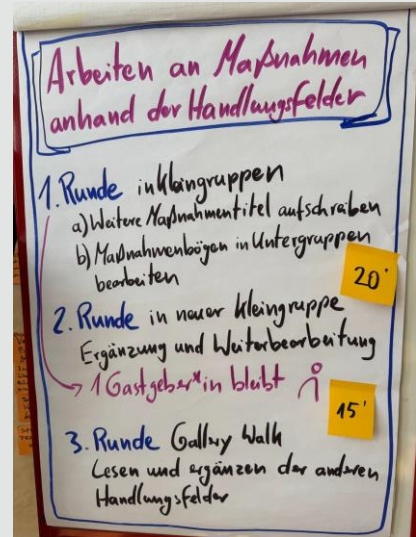 Arbeiten an Maßnahmen
anhand der Handlungsfelder
1. Runde in Kleingruppen
a) Weitere Maßnahmentitel aufschreiben
b) Maßnahmenbögen in Untergruppen
bearbeiten
20'
2. Runde in neuer Kleingruppe
Ergänzung und Weiterbearbeitung
1 Gastgeber*in bleibt
15'
3. Runde Gallery Walk
Lesen und ergänzen der anderen
Handlungsfelder